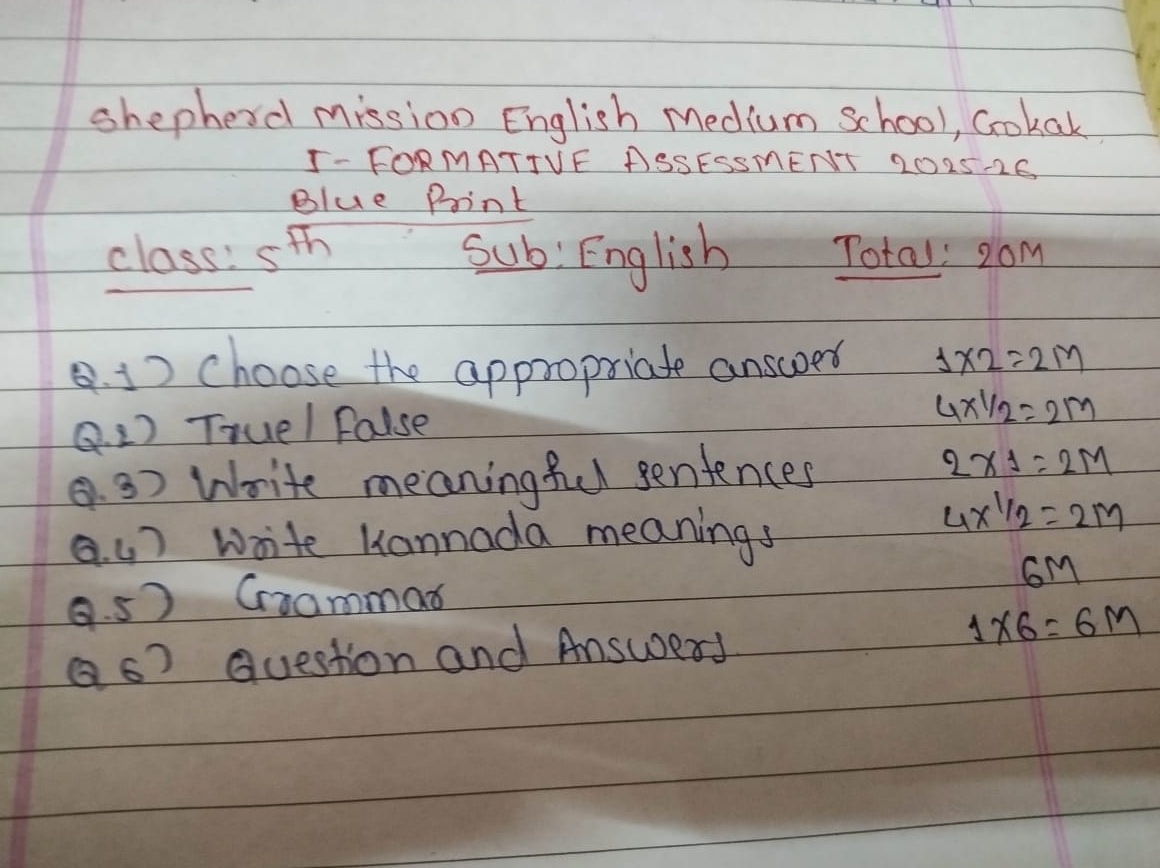 Shepherd Mission English Medium School, Gokak
I - FORMATIVE ASSESSMENT 2025-26
Blue Print
class: 5th Sub: English Total: 20M
Q.1) Choose the appropriate answer 1x2=2M
Q.2) True/False 4x1/2=2M
Q.3) Write meaningful sentences 2x1=2M
Q.4) Write Kannada meanings 4x1/2=2M
Q.5) Grammar 6M
Q6) Question and Answers 1x6=6M